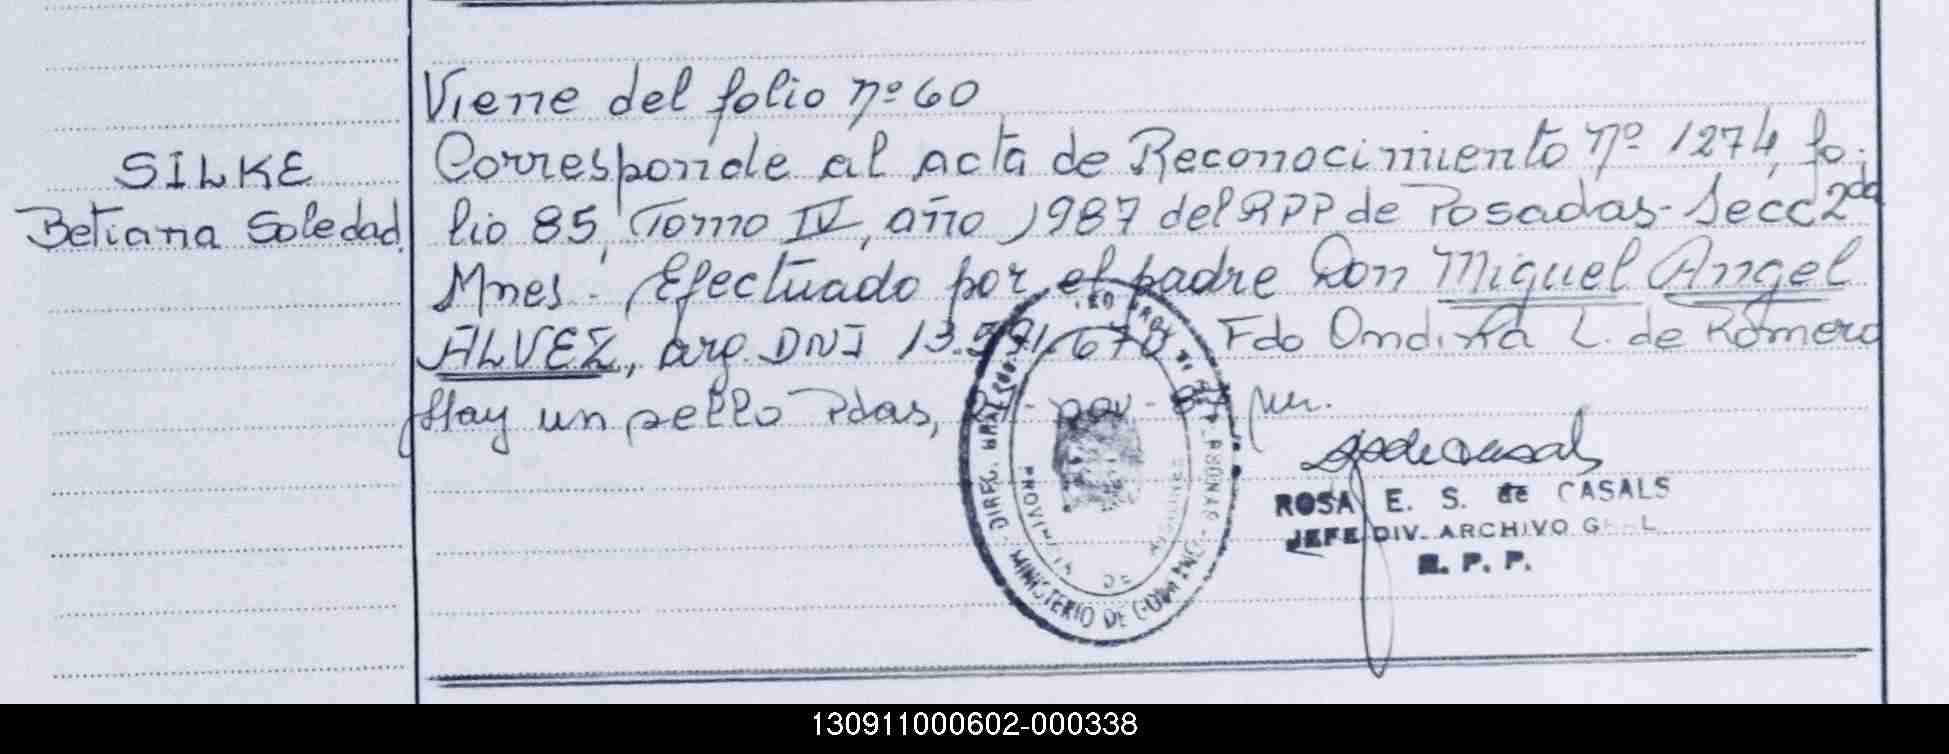 Viene del folio nº 60
SILKE
Betiana Soledad.
Corresponde al acta de Reconocimiento nº 1274, fo-
lio 85, Tomo IV, año 1987 del RPP de Posadas- Secc 2da
Mnes. Efectuado por el padre Don Miguel Angel
ALVEZ, arg. DNI 13.591.670 Fdo Ondina L. de Romero
Hay un sello Pdas, nov - 87
ROSA E. S. de CASALS
JEFE DIV. ARCHIVO GRAL
R. P. P.
PROVINCIA DE
MINISTERIO DE GOBIERNO
130911000602-000338